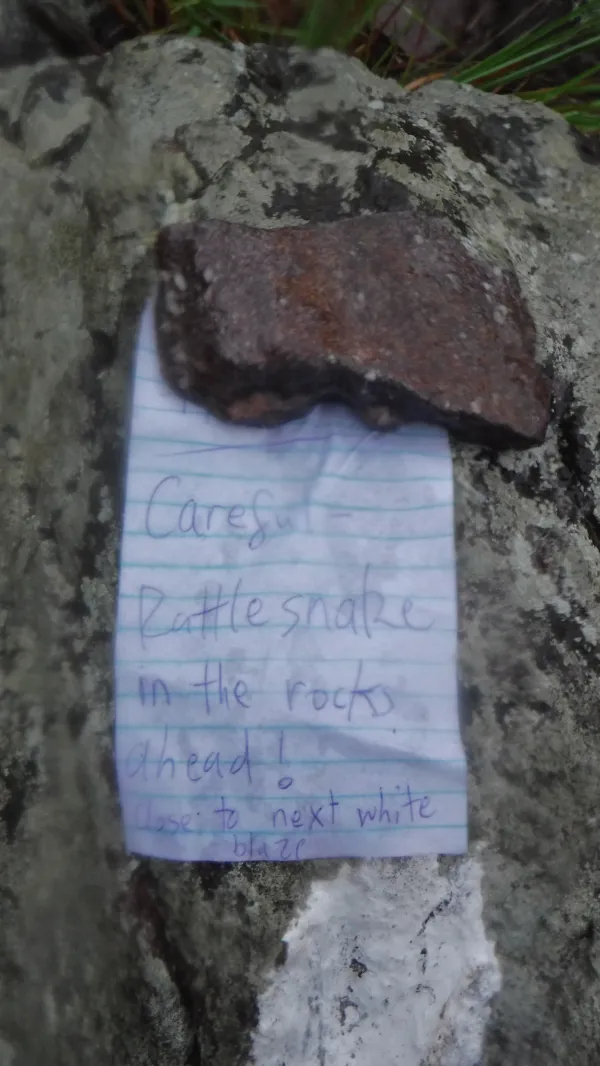 Careful -
Rattlesnake
in the rocks
ahead!
close to next white
blaze